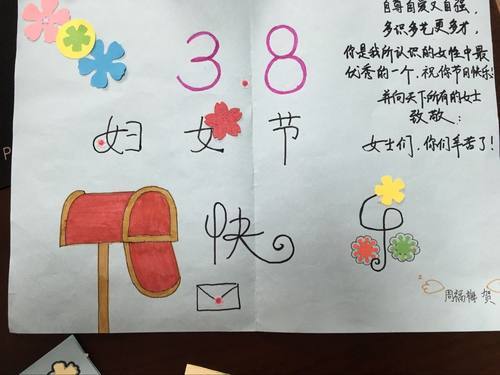 3.8
妇女节
快乐
自尊自爱又自强，
多识多艺更多才，
你是我所认识的女性中最
优秀的一个，祝你节日快乐！
并向天下所有的女士
致敬：
女士们，你们辛苦了！
周福梅 贺